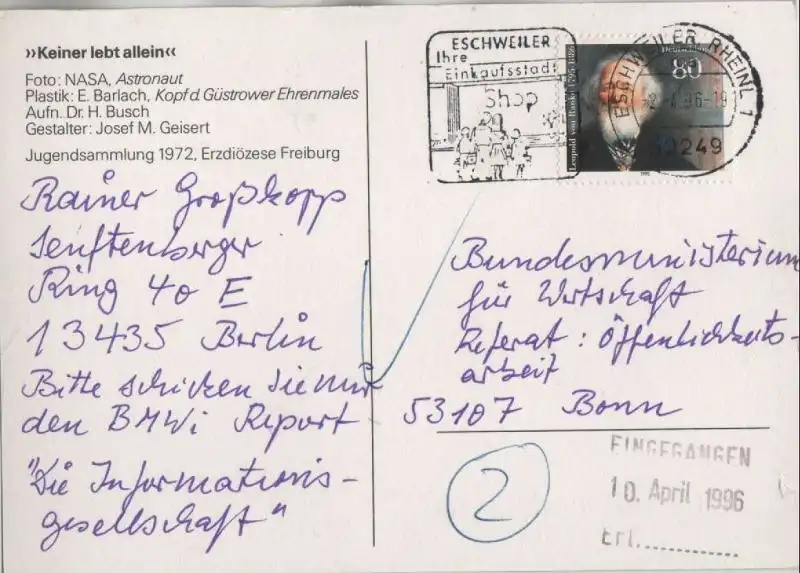 »Keiner lebt allein«
Foto: NASA, Astronaut
Plastik: E. Barlach, Kopf d. Güstrower Ehrenmales
Aufn. Dr. H. Busch
Gestalter: Josef M. Geisert
Jugendsammlung 1972, Erzdiözese Freiburg
Rainer Großkopp
Senftenberger
Ring 40 E
13435 Berlin
Bitte schicken Sie mir
den BMWi Report
"Die Informations-
gesellschaft"
ESCHWEILER
Ihre
Einkaufsstadt
Shop
Deutschland
80
Leopold von Ranke 1795-1886
1995
ESCHWEILER, RHEINL 1
Bundesministerium
für Wirtschaft
Referat: Öffentlichkeits-
arbeit
53107 Bonn
2
EINGEGANGEN
10. April 1996
Erl.............